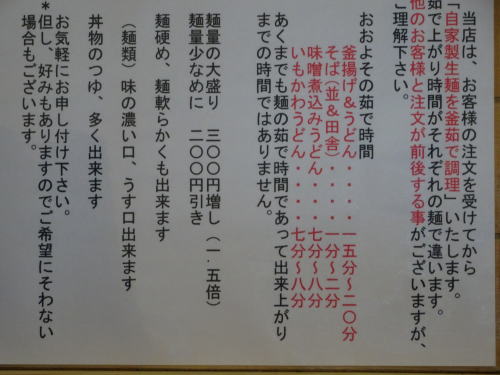 当店は、お客様の注文を受けてから
「自家製生麺を釜茹で調理」いたします。
茹で上がり時間がそれぞれの麺で違います。
他のお客様と注文が前後する事がございますが、
ご理解下さい。
おおよその茹で時間
釜揚げ&うどん・・・・一五分〜二〇分
そば(並&田舎)・・・・一分〜二分
味噌煮込みうどん・・・・七分〜八分
いもかわうどん・・・・七分〜八分
あくまでも麺の茹で時間であって出来上がり
までの時間ではありません。
麺量の大盛り 三〇〇円増し(一.五倍)
麺量少なめに 二〇〇円引き
麺硬め、麺軟らかくも出来ます
(麺類)味の濃い口、うす口出来ます
丼物のつゆ、多く出来ます
お気軽にお申し付け下さい。
*但し、好みもありますのでご希望にそわない
場合もございます。